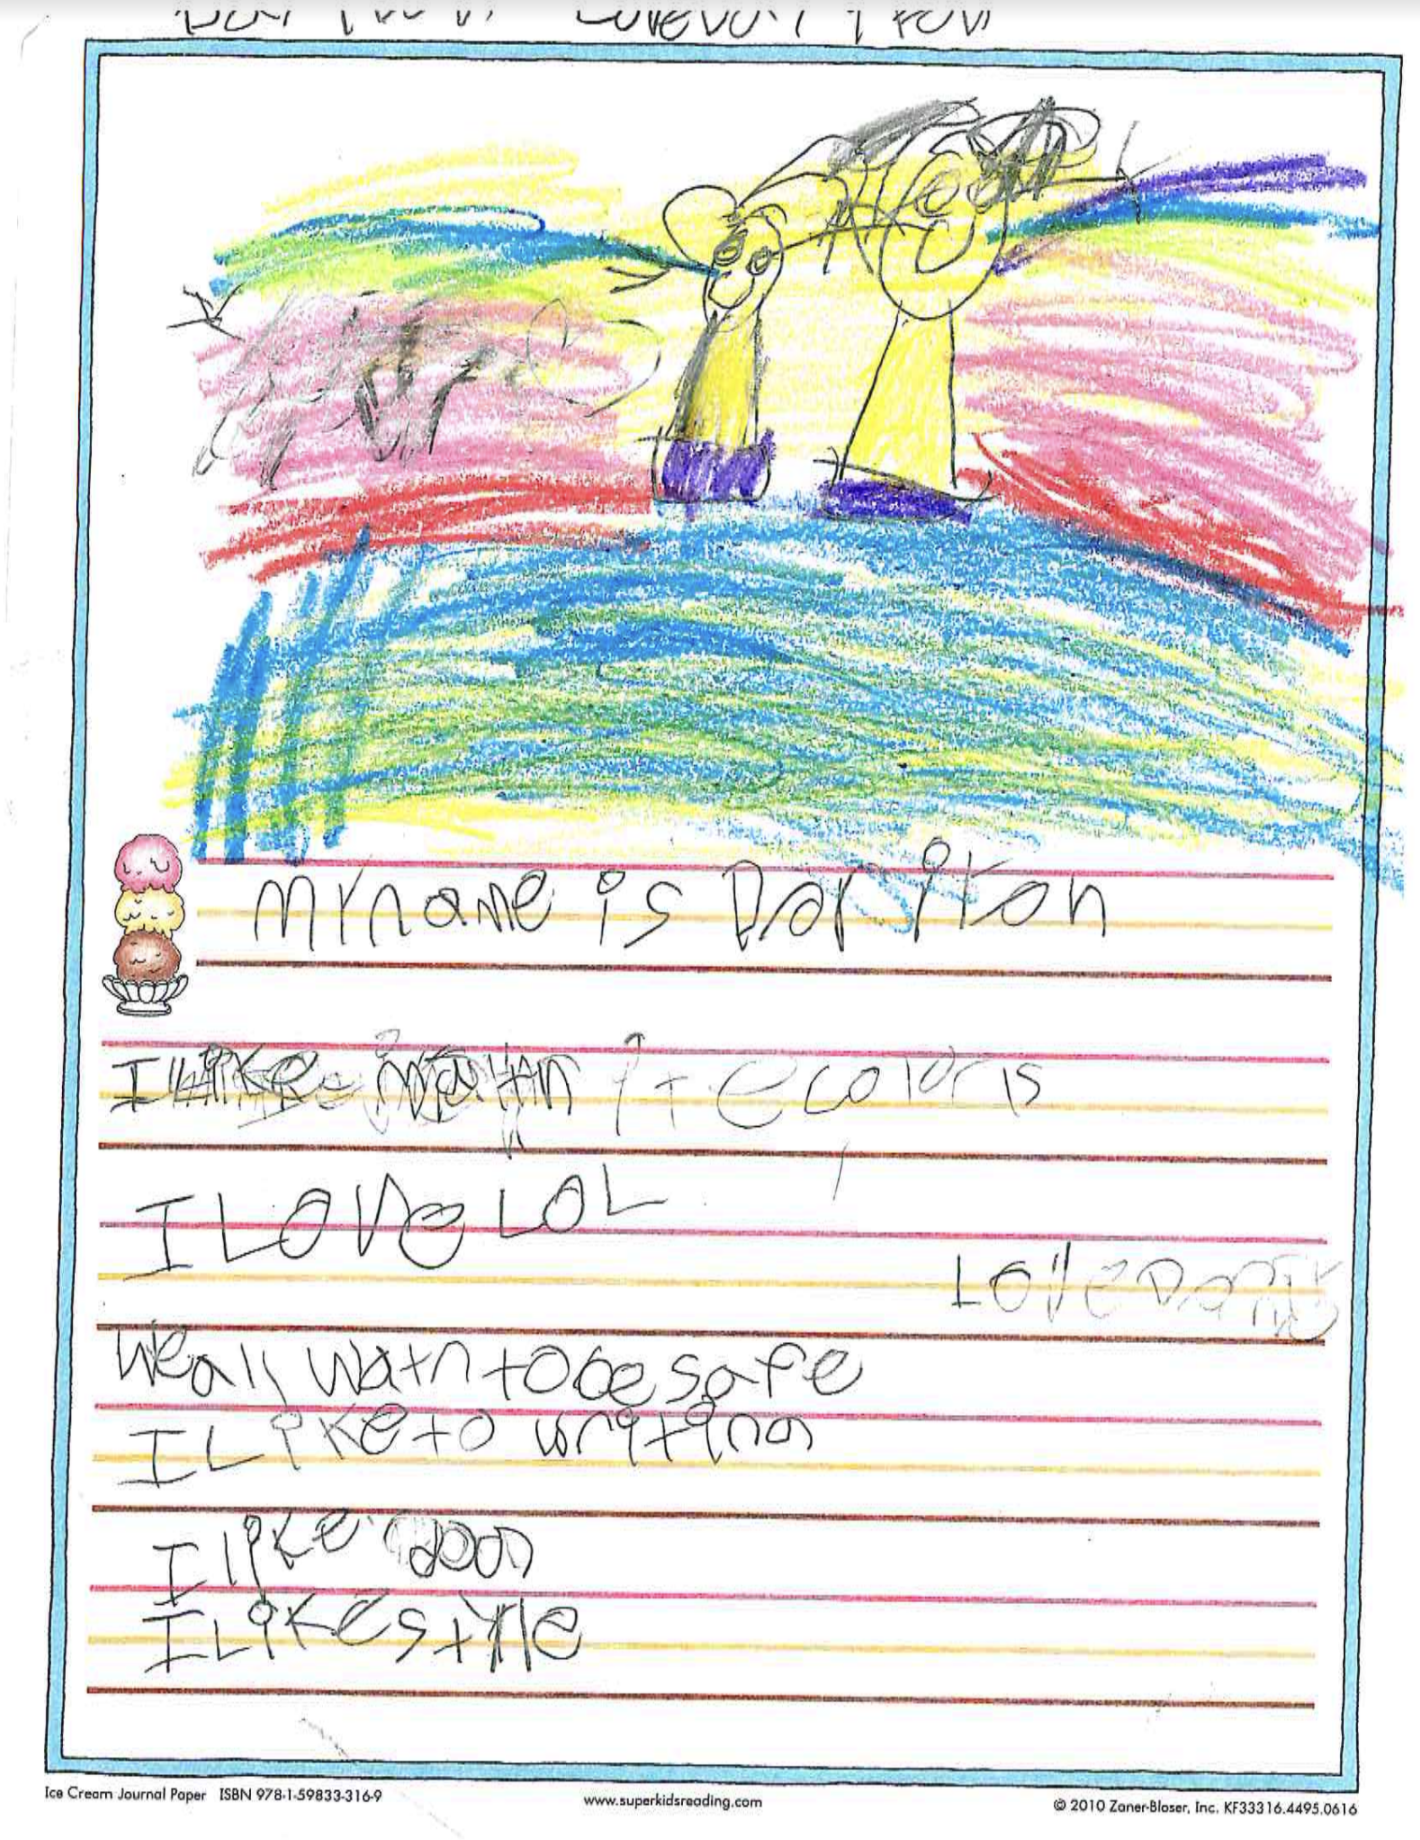 My name is Dar iton
I like
coloris
I LOVe LOL
LOVe
We all watn to be safe
I Like to writing
I like
I Like style
Ice Cream Journal Paper ISBN 978-1-59833-316-9 www.superkidsreading.com © 2010 Zaner-Bloser, Inc. KF33316.4495.0616